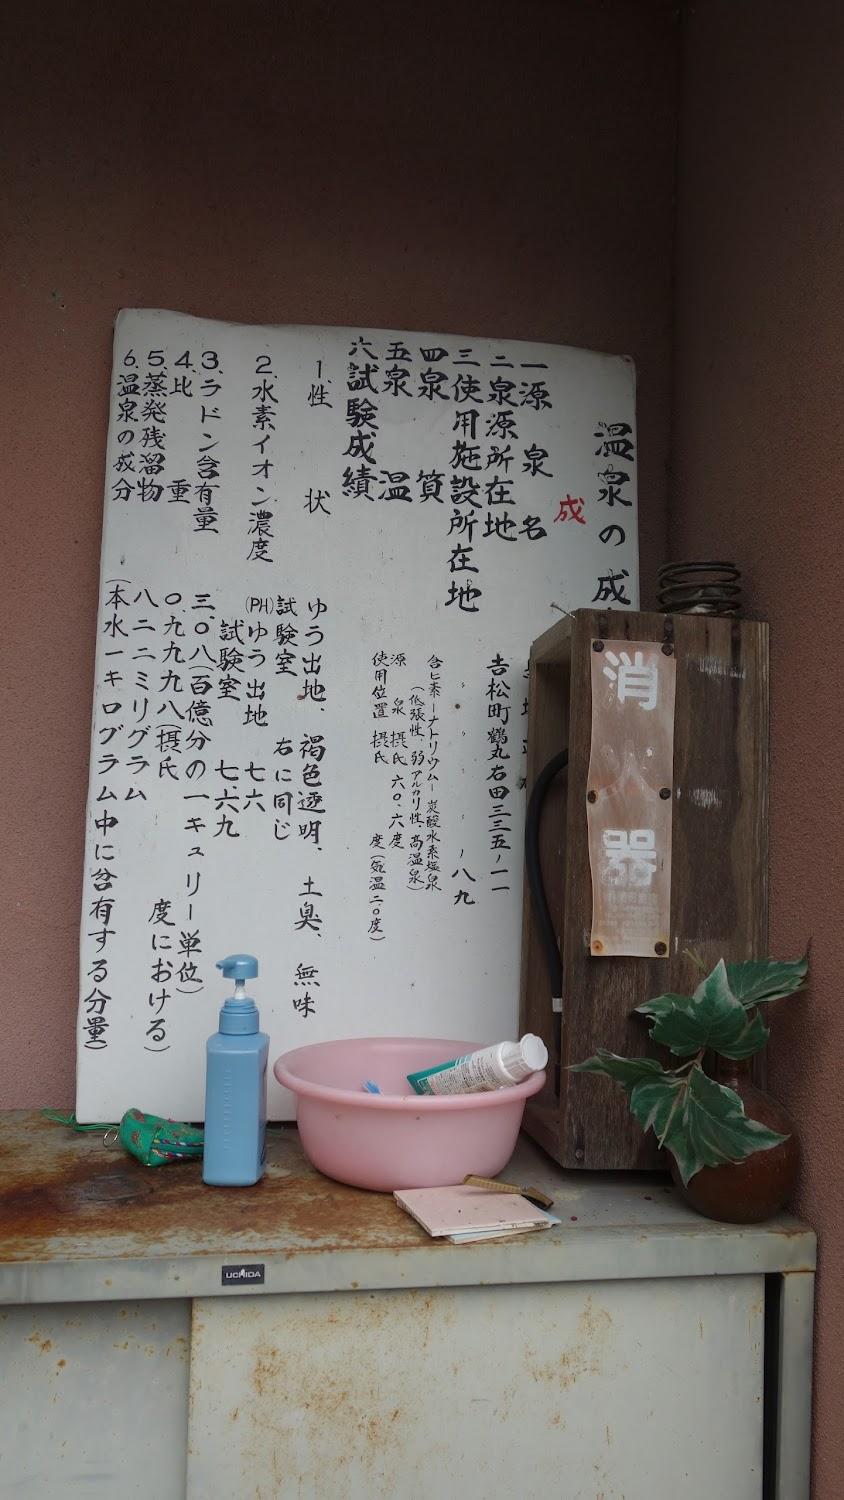 温泉の成
成
一源泉名
二泉源所在地 吉松町鶴丸右田三三五ノ一一
三使用施設所在地 〃 〃 〃 〃 ノ八九
四泉質 含ヒ素ーナトリウムー炭酸水素塩泉
(低張性、弱アルカリ性、高温泉)
五泉温 源泉 摂氏 六〇.六度
使用位置 摂氏 度(気温二〇度)
六試験成績
1性状 ゆう出地、褐色透明、土臭、無味
試験室 右に同じ
2.水素イオン濃度 (PH)ゆう出地 七.六
試験室 七.六九
3.ラドン含有量 三.〇八(百億分の一キュリー単位)
4.比重 〇.九九九八(摂氏 度における)
5.蒸発残溜物 八二二ミリグラム
6.温泉の成分 (本水一キログラム中に含有する分量)
消火器
UCHIDA